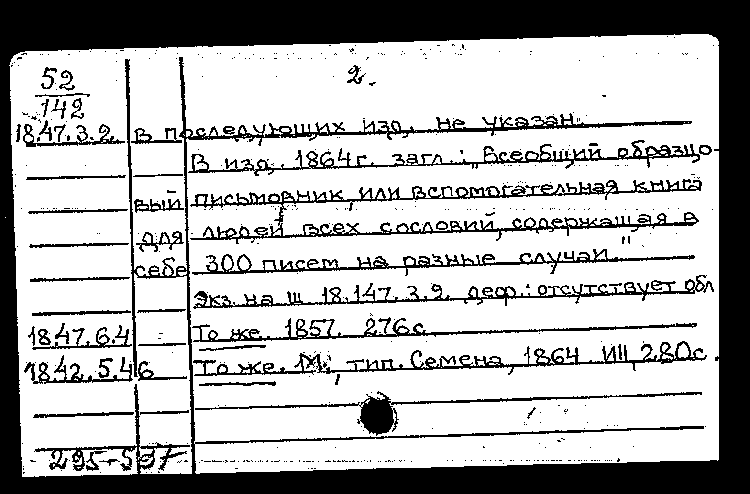 52
142
2.
18.47.3.2. В последующих изд. не указан.
В изд. 1864 г. загл.: „Всеобщий образцо-
вый письмовник, или вспомогательная книга
для людей всех сословий, содержащая в
себе 300 писем на разные случаи."
Экз. на Ш 18.147.3.2 деф.: отсутствует обл
18.47.6.4 То же. 1857. 276 с.
18.42.5.46 То же. М., тип. Семена, 1864. 280 с.
295-597